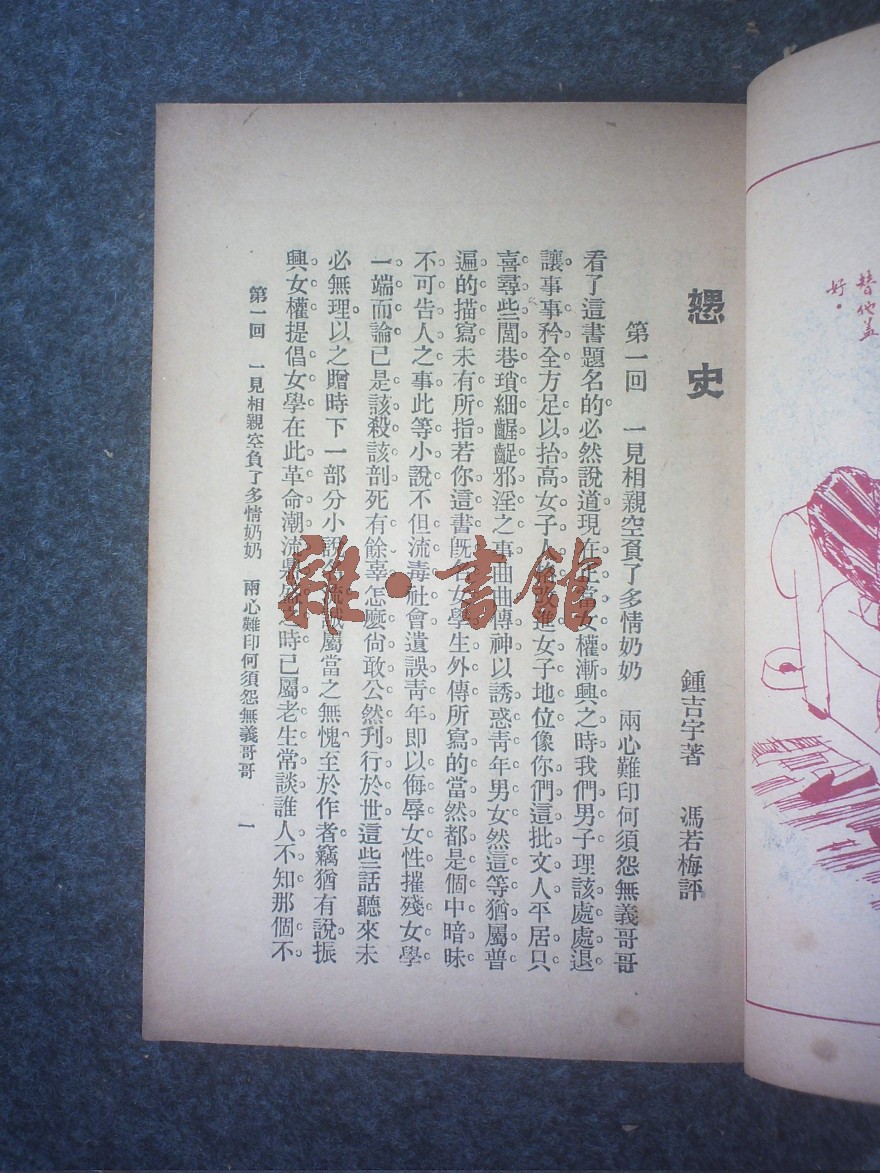 替他蓋
好。
史
鍾吉宇著　馮若梅評
第一回　一見相親空負了多情奶奶　兩心難印何須怨無義哥哥
看了這書題名的必然說道現在正當女權漸興之時我們男子理該處處退
讓事事矜全方足以抬高女子人格改進女子地位像你們這批文人平居只
喜尋些閭巷瑣細齷齪邪淫之事曲曲傳神以誘惑青年男女然這等猶屬普
遍的描寫未有所指若你這書旣名女學生外傳所寫的當然都是個中暗昧
不可告人之事此等小說不但流毒社會遺誤靑年卽以侮辱女性摧殘女學
一端而論已是該殺該剖死有餘辜怎麼尙敢公然刋行於世這些話聽來未
必無理以之贈時下一部分小說名流誠屬當之無愧至於作者竊猶有說振
興女權提倡女學在此革命潮流鼎盛之時已屬老生常談誰人不知那個不
第一回　一見相親空負了多情奶奶　兩心難印何須怨無義哥哥　一
雜·書館